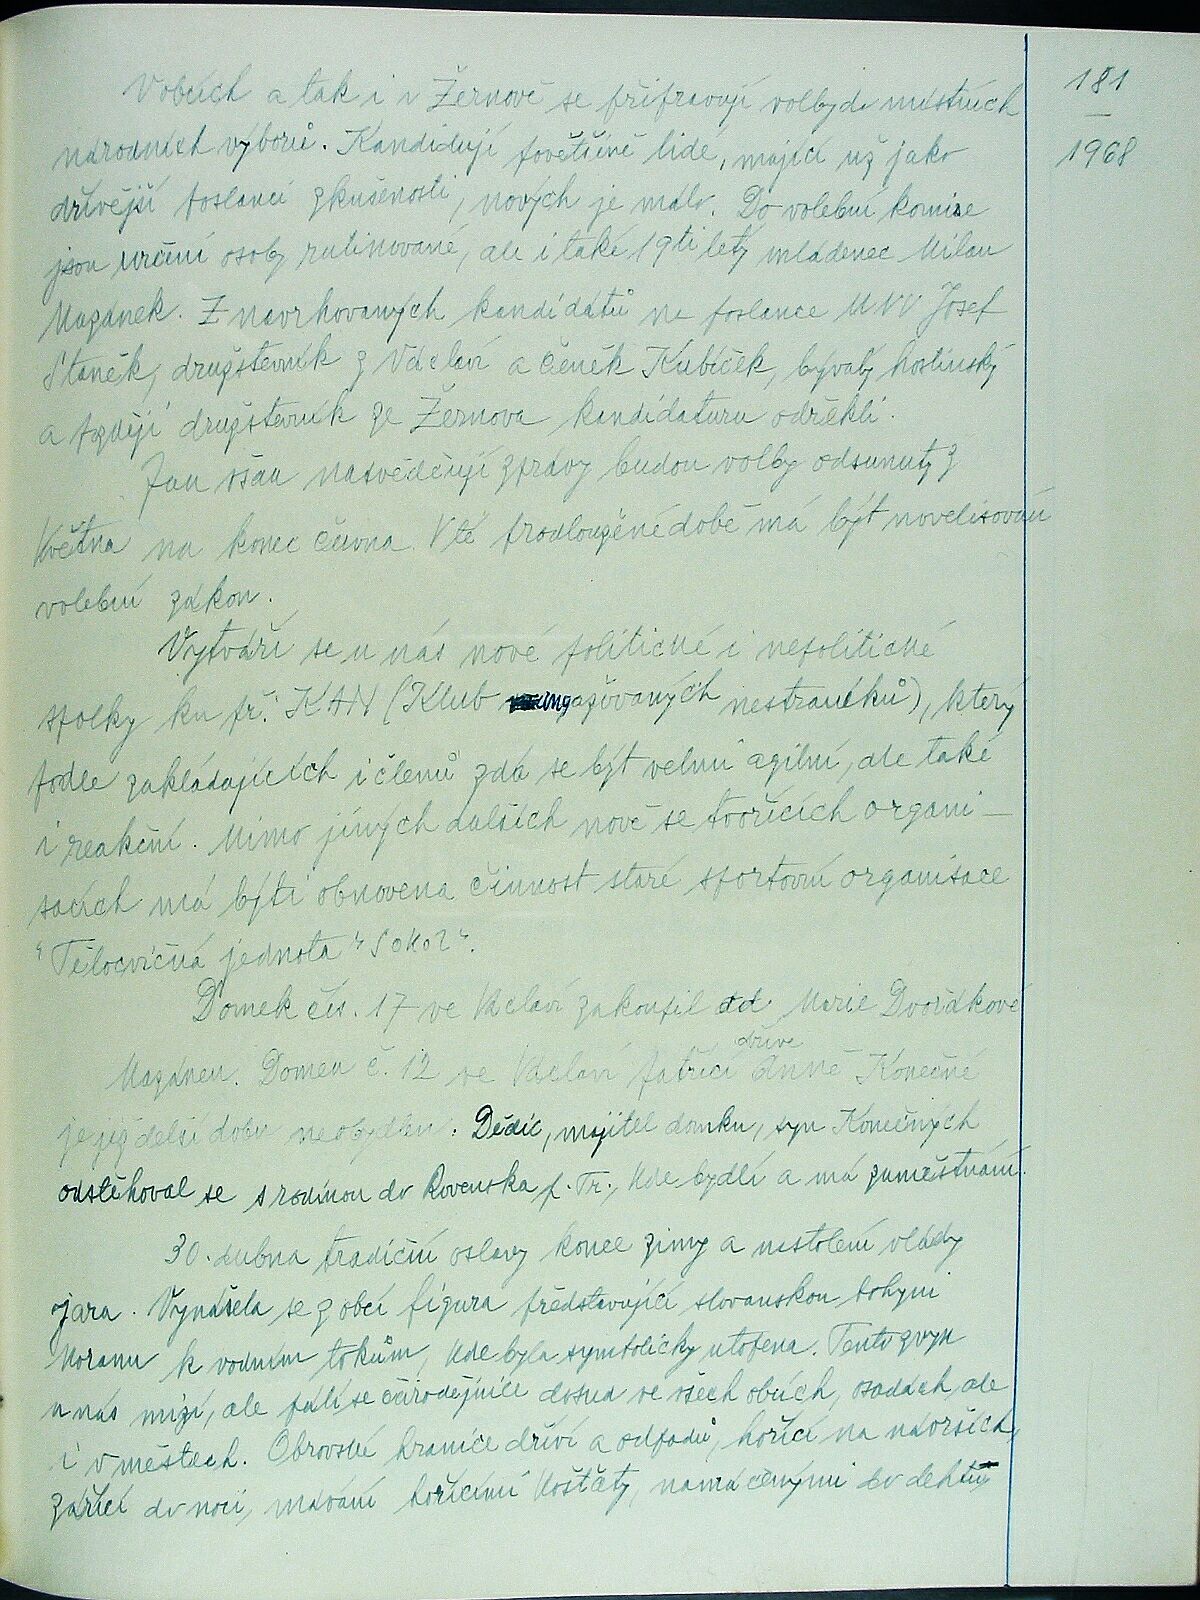 181
—
1968
V obcích a tak i v Žernově se připravují volby do místních
národních výborů. Kandidují povětšině lidé, mající už jako
dřívější poslanci zkušenosti, nových je málo. Do volební komise
jsou určeni osoby rutinované, ale i také 19ti letý mládenec Milan
Mazánek. Z navrhovaných kandidátů na poslance MNV Josef
Staněk, družstevník z Václaví a Čeněk Kubíček, bývalý hostinský
a později družstevník ze Žernova kandidaturu odřekli.
Jak však nasvědčují zprávy budou volby odsunuty z
května na konec června. V té prodloužené době má být novelisován
volební zákon.
Vytváří se u nás nové politické i nepolitické
spolky ku př. KAN (Klub angažovaných nestraníků), který
podle zakládajících i členů zdá se být velmi agilní, ale také
i reakční. Mimo jiných dalších nově se tvořících organi-
sacích má býti obnovena činnost staré sportovní organisace
"Tělocvičná jednota "Sokol".
Domek čís. 17 ve Václaví zakoupil od Marie Dvořákové
Mazánek. Domek č. 12 ve Václaví patřící dříve Anně Konečné
je již delší dobu neobydlen. Dědic, majitel domku, syn Konečných
odstěhoval se s rodinou do Rovenska p. Tr., kde bydlí a má zaměstnání.
30. dubna tradiční oslavy konce zimy a nastolení vlády
jara. Vynášela se z obcí figura představující slovanskou bohyni
Moranu k vodním tokům, kde byla symbolicky utopena. Tento zvyk
u nás mizí, ale pálí se čarodějnice dosud ve všech obcích, osadách, ale
i v městech. Obrovské hranice dříví a odpadů, hořící na návrších,
zářící do noci, mávání hořícími košťaty, namáčenými do dehtu